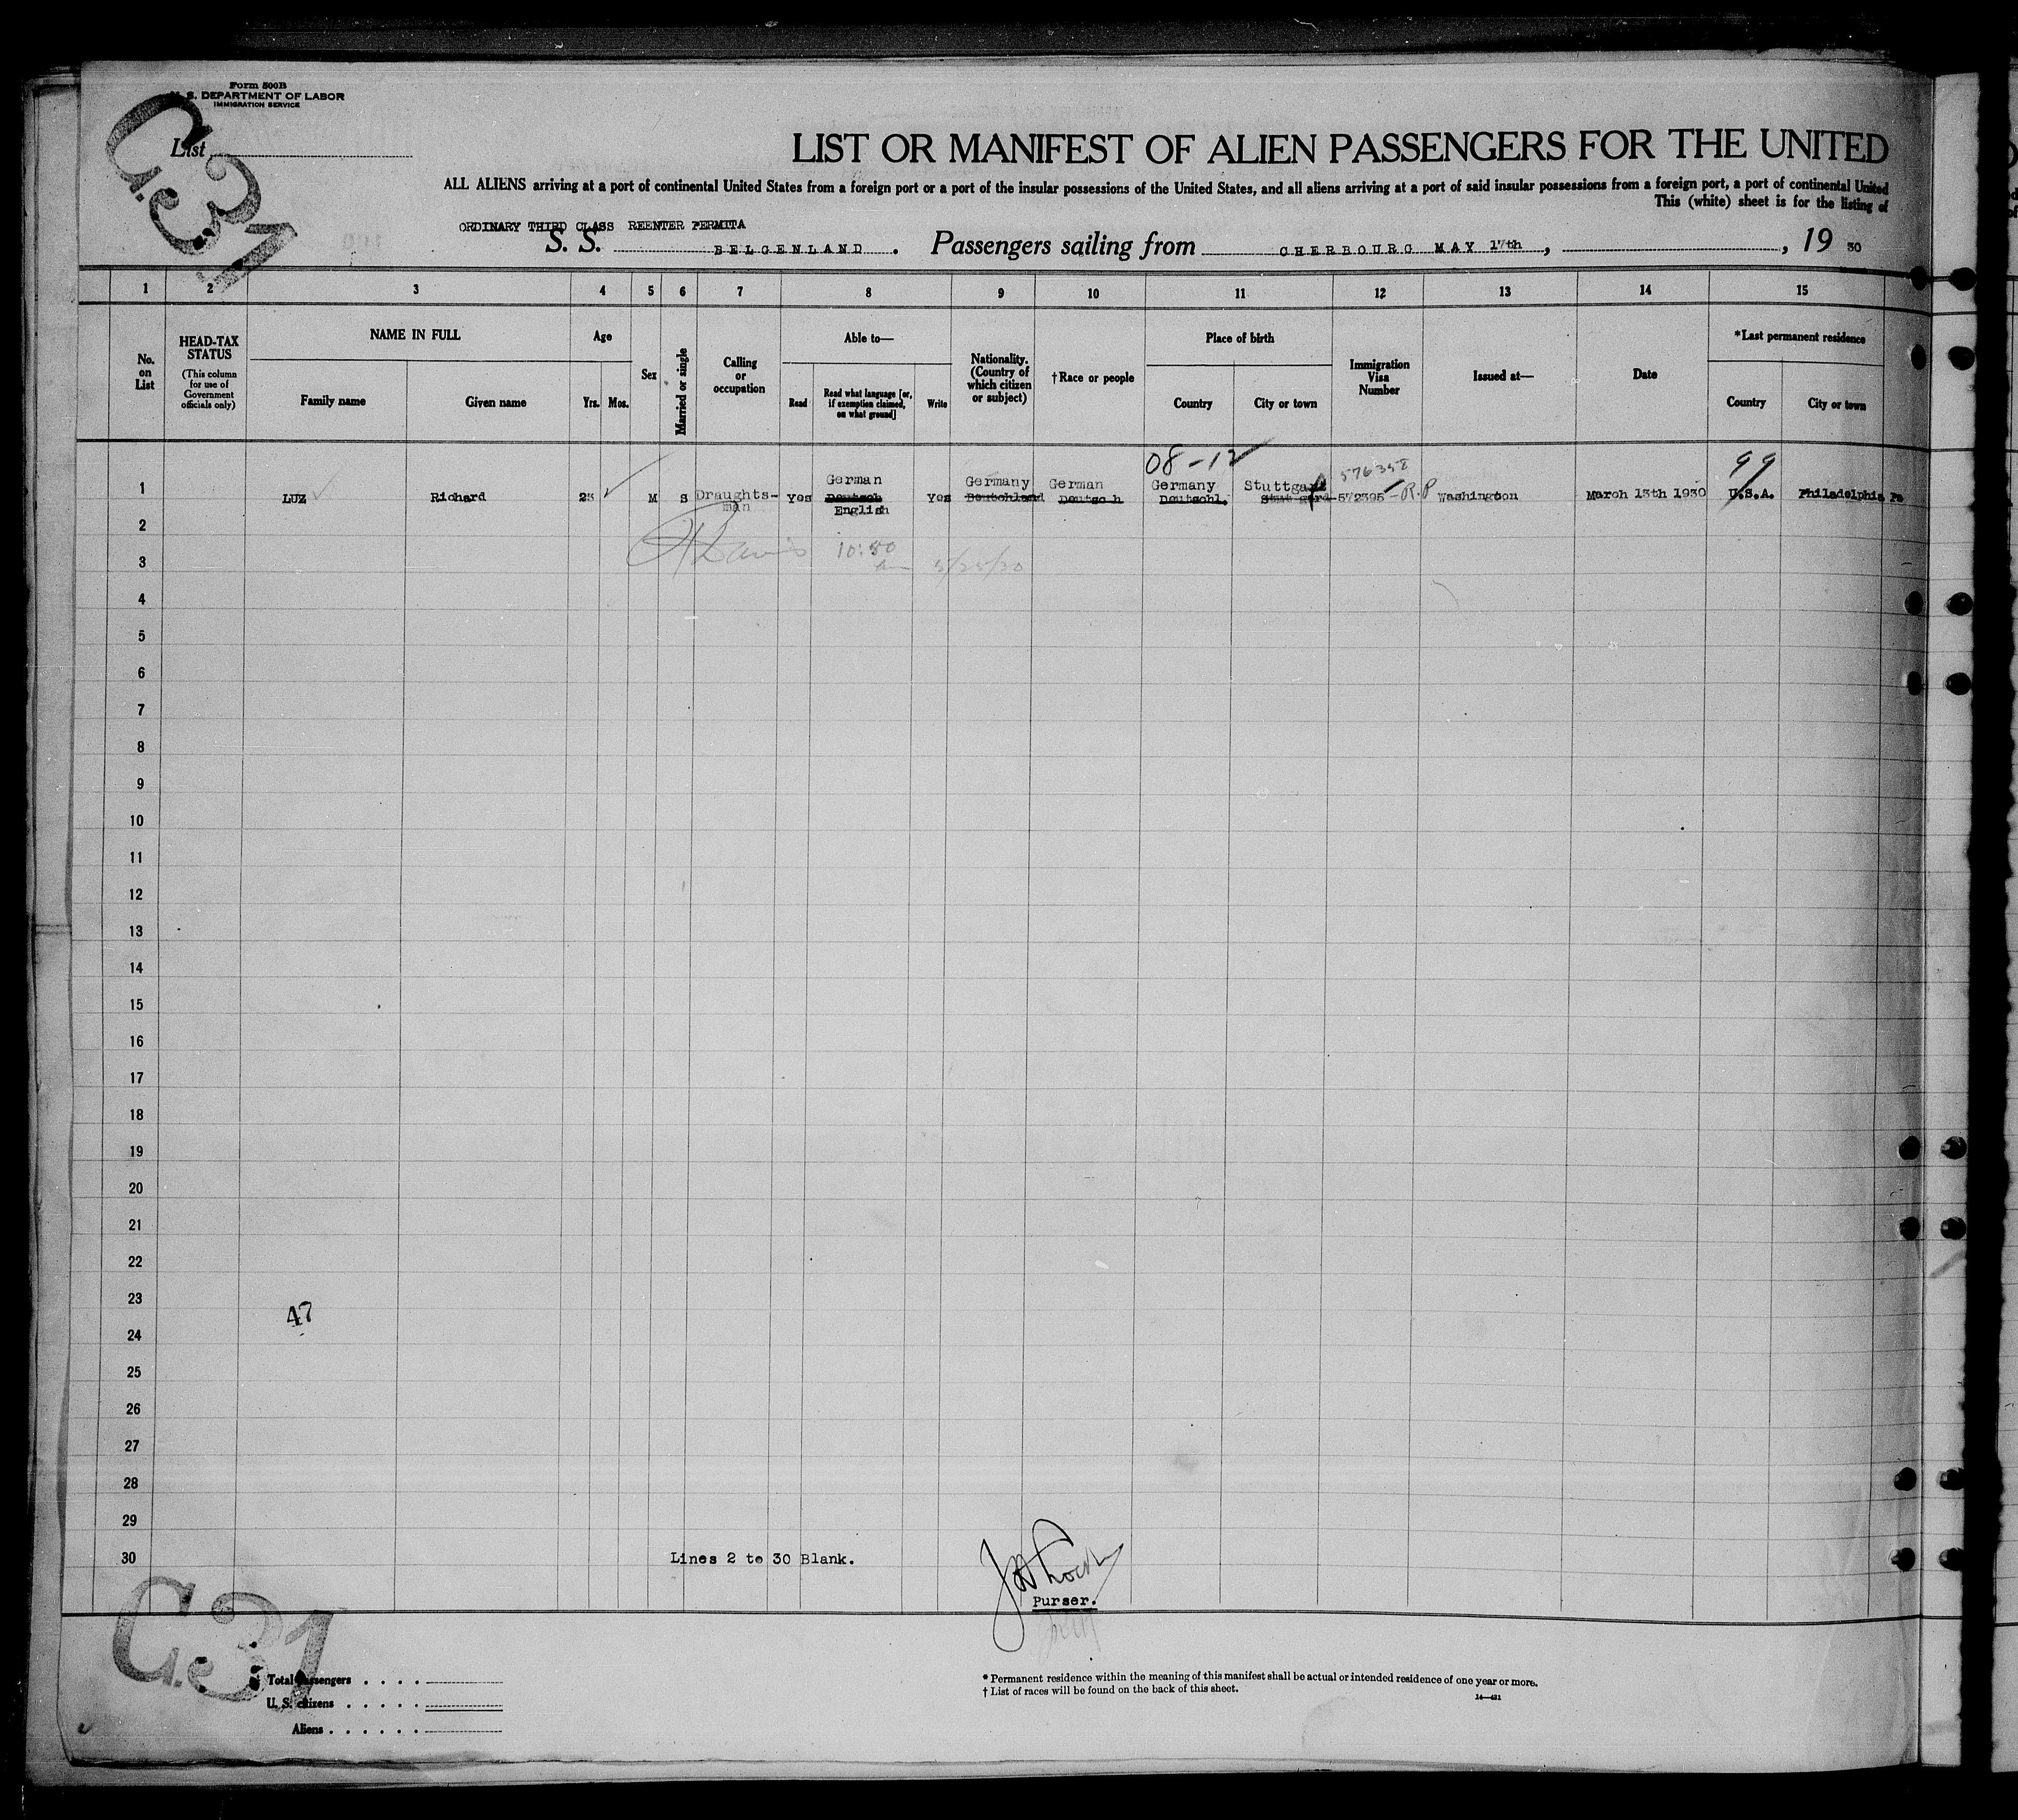 Form 500B
U. S. DEPARTMENT OF LABOR
IMMIGRATION SERVICE
C.31
List
LIST OR MANIFEST OF ALIEN PASSENGERS FOR THE UNITED
ALL ALIENS arriving at a port of continental United States from a foreign port or a port of the insular possessions of the United States, and all aliens arriving at a port of said insular possessions from a foreign port, a port of continental United
This (white) sheet is for the listing of
ORDINARY THIRD CLASS REENTER PERMITA
S. S. BELGENLAND. Passengers sailing from CHERBOURG MAY 17th, , 19 30
1 2 3 4 5 6 7 8 9 10 11 12 13 14 15
No. on List
HEAD-TAX STATUS (This column for use of Government officials only)
NAME IN FULL
Family name Given name
Age
Yrs. Mos.
Sex
Married or single
Calling or occupation
Able to—
Read Read what language [or, if exemption claimed, on what ground] Write
Nationality. (Country of which citizen or subject)
†Race or people
Place of birth
Country City or town
Immigration Visa Number
Issued at—
Date
*Last permanent residence
Country City or town
08-12 99
German Germany German Germany Stuttgart
1 LUZ Richard 23 M S Draughts- Yes Deutsch Yes Deutschland Deutsch Deutschl. Stuttgard 572395 - R.P Washington March 13th 1930 U.S.A. Philadelphia Pa
man English
2
10:50
3
am 5/25/30
4
5
6
7
8
9
10
11
12
13
14
15
16
17
18
19
20
21
22
23
47
24
25
26
27
28
29
30 Lines 2 to 30 Blank.
Purser.
C.31
Total passengers
U. S. citizens
Aliens
* Permanent residence within the meaning of this manifest shall be actual or intended residence of one year or more.
† List of races will be found on the back of this sheet.
14—421